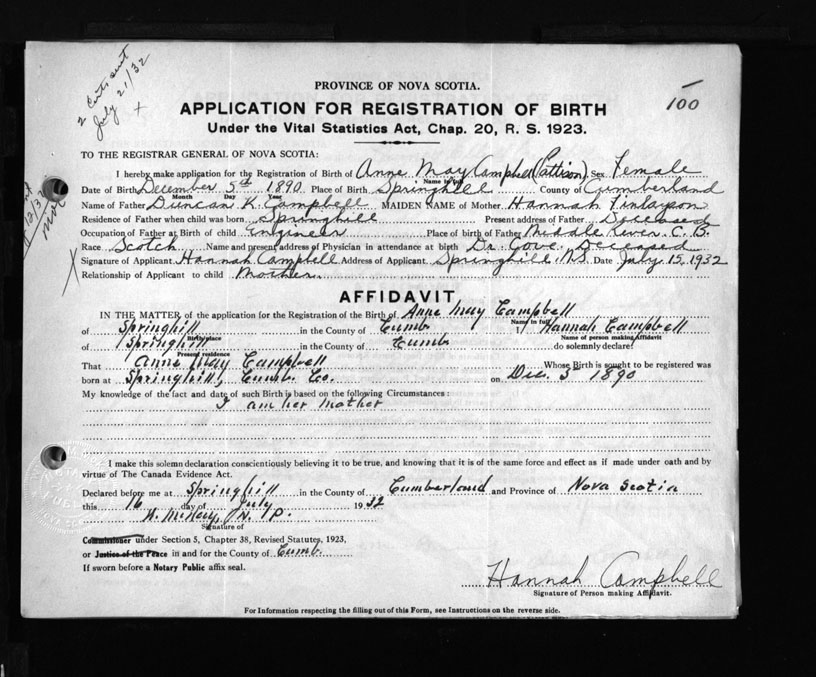 2 Certs sent
July 21/32
100
PROVINCE OF NOVA SCOTIA.
APPLICATION FOR REGISTRATION OF BIRTH
Under the Vital Statistics Act, Chap. 20, R. S. 1923.
TO THE REGISTRAR GENERAL OF NOVA SCOTIA:
I hereby make application for the Registration of Birth of Anne May Campbell (Pattison) Sex Female
Name in full
Date of Birth December 5th 1890 Place of Birth Springhill County of Cumberland
Month Day Year
Name of Father Duncan K. Campbell MAIDEN NAME of Mother Hannah Finlayson
Residence of Father when child was born Springhill Present address of Father Deceased
Occupation of Father at Birth of child Engineer Place of birth of Father Middle River C. B.
Race Scotch Name and present address of Physician in attendance at birth Dr. Cove. Deceased
Signature of Applicant Hannah Campbell Address of Applicant Springhill N.S. Date July 15, 1932
Relationship of Applicant to child Mother
AFFIDAVIT
IN THE MATTER of the application for the Registration of the Birth of Anne May Campbell
Name in full
of Springhill in the County of Cumb I Hannah Campbell
Birthplace Name of person making Affidavit
of Springhill in the County of Cumb do solemnly declare:
Present residence
That Anne May Campbell Whose Birth is sought to be registered was
born at Springhill, Cumb. Co. on Dec. 5 1890
My knowledge of the fact and date of such Birth is based on the following Circumstances:
I am her mother
I make this solemn declaration conscientiously believing it to be true, and knowing that it is of the same force and effect as if made under oath and by
virtue of The Canada Evidence Act.
Declared before me at Springhill in the County of Cumberland and Province of Nova Scotia
this 16 day of July 1932
Signature of
Commissioner under Section 5, Chapter 38, Revised Statutes, 1923,
or Justice of the Peace in and for the County of Cumb.
If sworn before a Notary Public affix seal.
Hannah Campbell
Signature of Person making Affidavit.
For Information respecting the filling out of this Form, see Instructions on the reverse side.